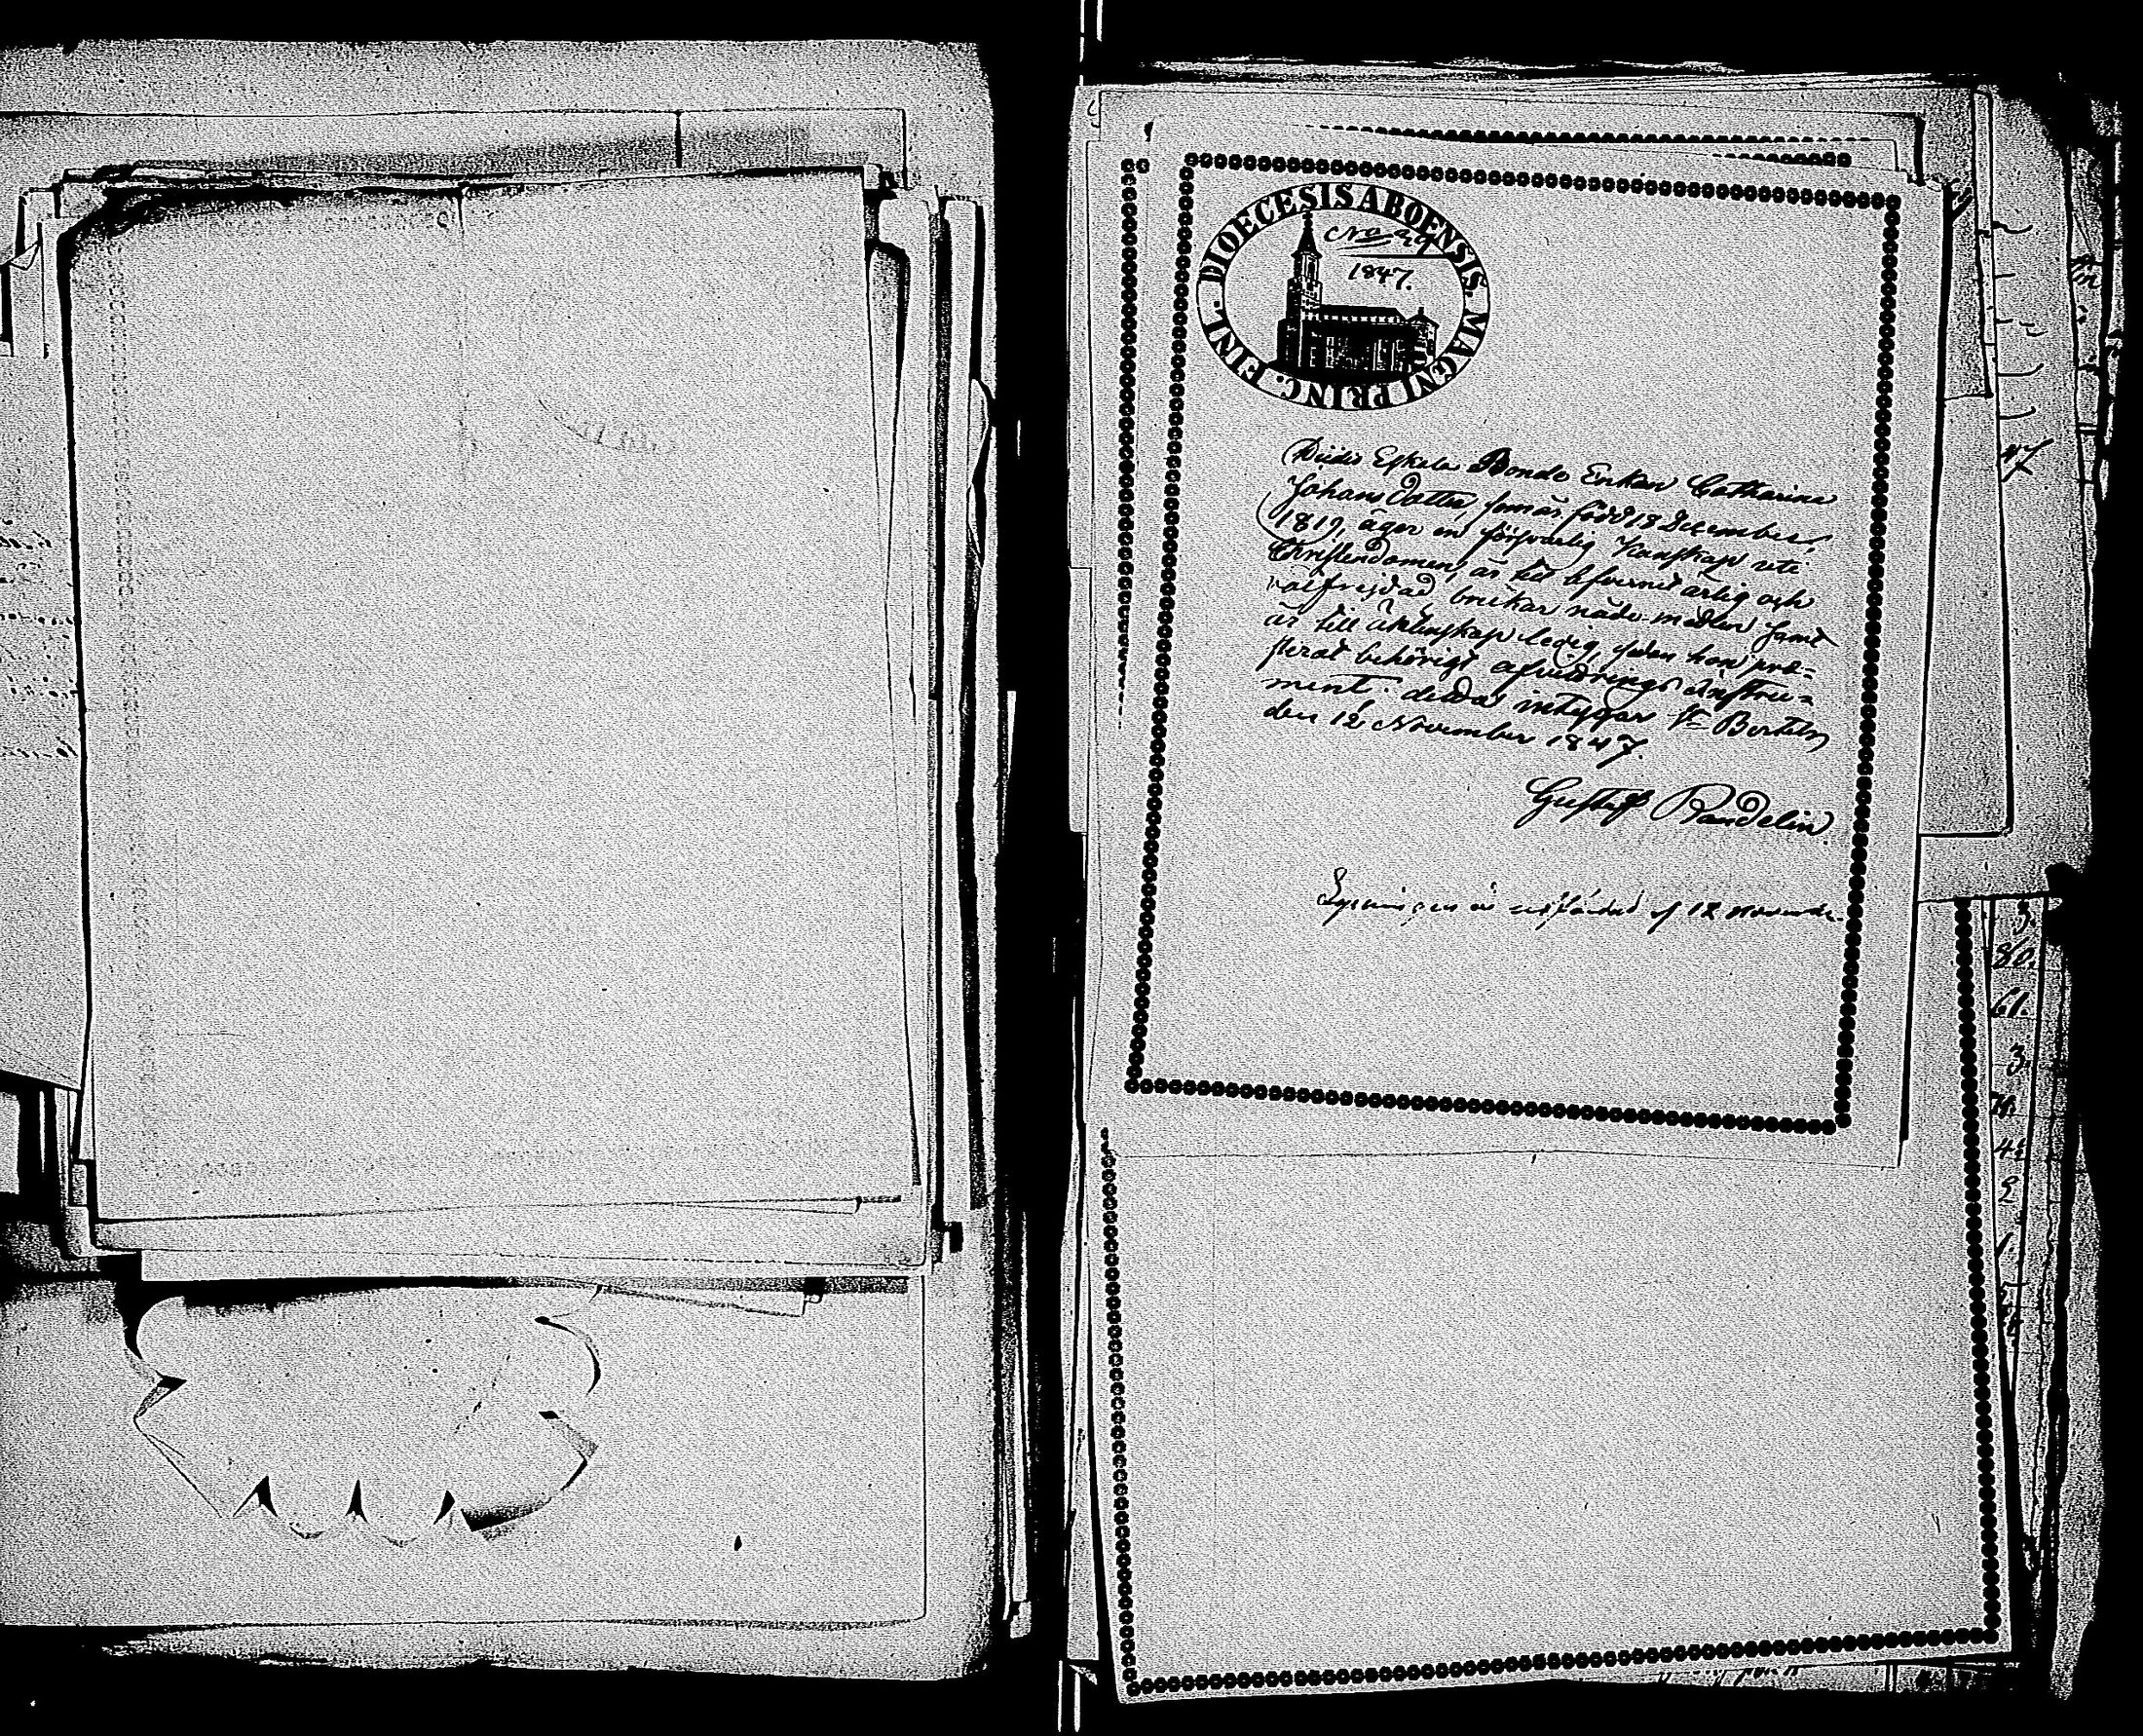 DIOECESIS ABOENSIS. MAGNI PRINC. FINL.
No 29
1847.
Eskela Bonde Enkan Catharina
Johans Dotter, som är född 18 December
1819, äger en försvarlig Kunskap uti
Christendomen, är till lefvernet ärlig och
välfrejdad brukar nåde-medlen samt
är till äktenskap ledig, sedan hon præ-
sterat behörigt afvittrings Instru-
ment. detta intygar St Bertels
den 12 November 1847.
Gustaf Randelin.
Lysningen är utfärdad d 12 November
47
3
80.
61.
3